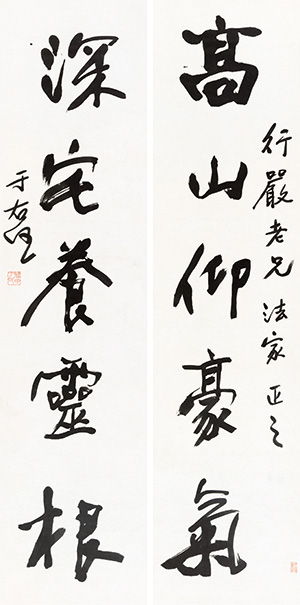 高山仰豪氣
行嚴老兄法家正之
深宅養靈根
于右任